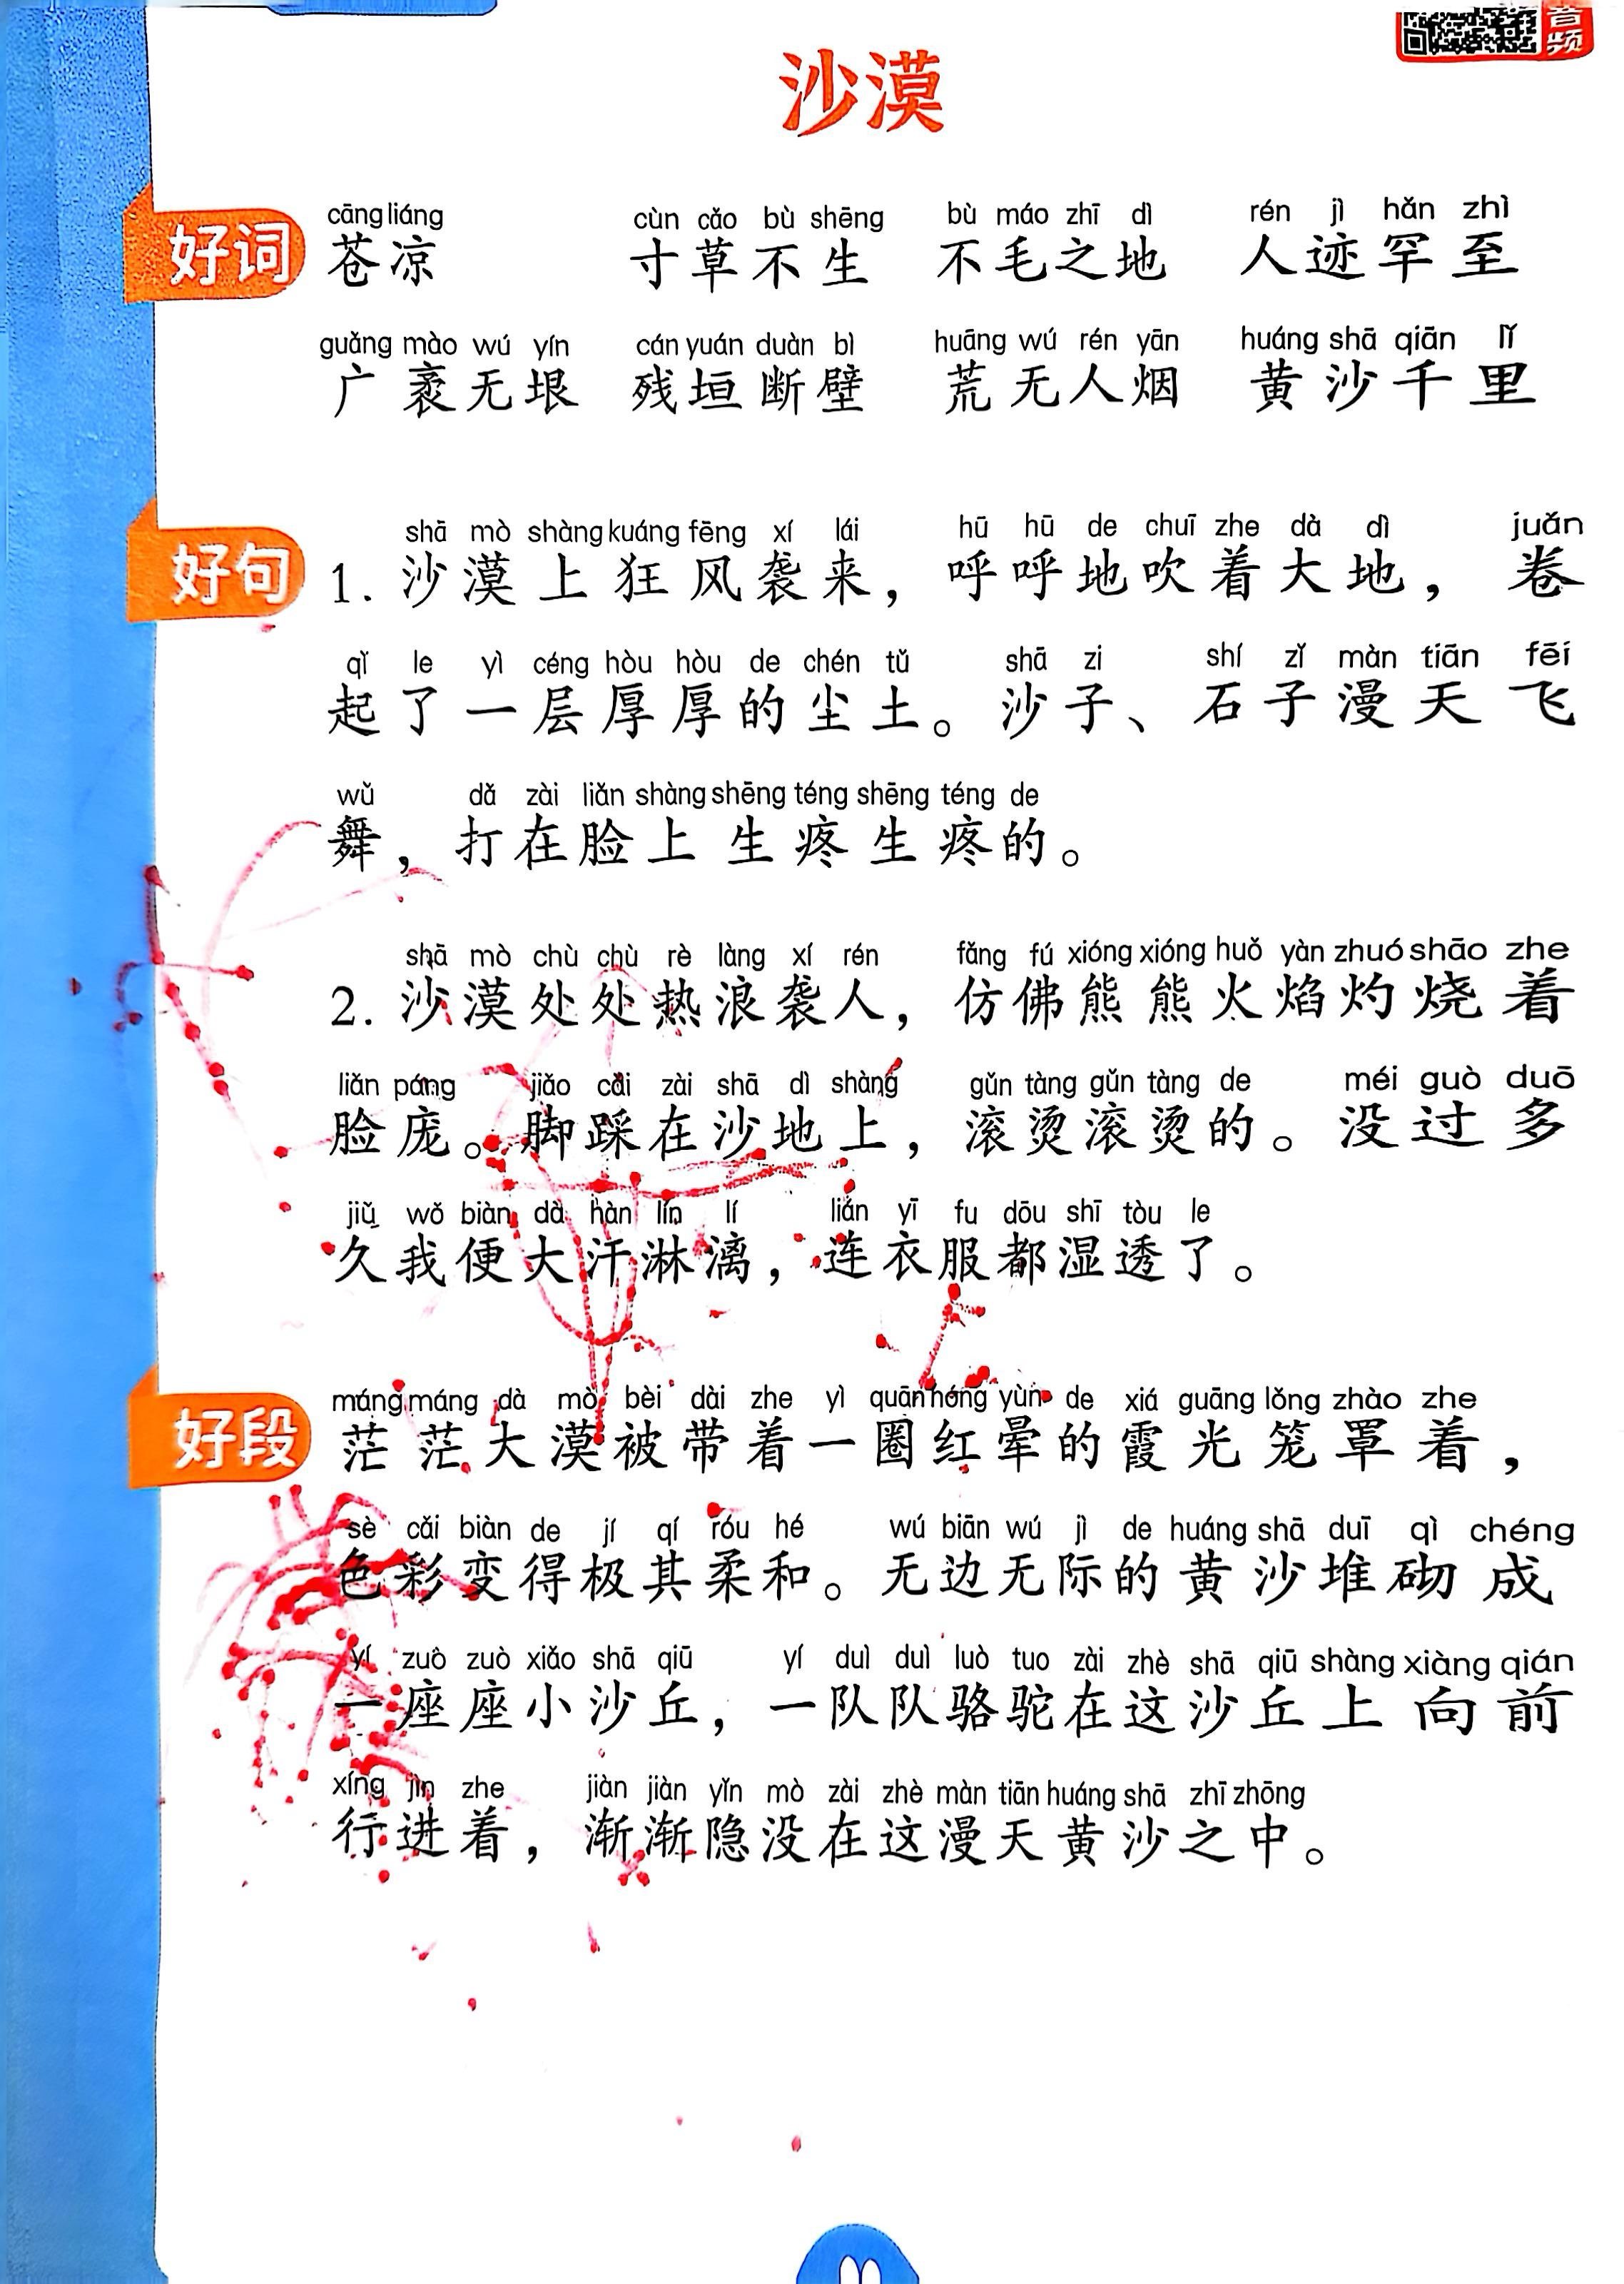 音频
沙漠
好词
cāng liáng cùn cǎo bù shēng bù máo zhī dì rén jì hǎn zhì
苍凉 寸草不生 不毛之地 人迹罕至
guǎng mào wú yín cán yuán duàn bì huāng wú rén yān huáng shā qiān lǐ
广袤无垠 残垣断壁 荒无人烟 黄沙千里
好句
shā mò shàng kuáng fēng xí lái hū hū de chuī zhe dà dì juǎn
1. 沙漠上狂风袭来，呼呼地吹着大地，卷
qǐ le yì céng hòu hòu de chén tǔ shā zi shí zǐ màn tiān fēi
起了一层厚厚的尘土。沙子、石子漫天飞
wǔ dǎ zài liǎn shàng shēng téng shēng téng de
舞，打在脸上生疼生疼的。
shā mò chù chù rè làng xí rén fǎng fú xióng xióng huǒ yàn zhuó shāo zhe
2. 沙漠处处热浪袭人，仿佛熊熊火焰灼烧着
liǎn páng jiǎo cǎi zài shā dì shàng gǔn tàng gǔn tàng de méi guò duō
脸庞。脚踩在沙地上，滚烫滚烫的。没过多
jiǔ wǒ biàn dà hàn lín lí lián yī fu dōu shī tòu le
久我便大汗淋漓，连衣服都湿透了。
好段
máng máng dà mò bèi dài zhe yì quān hóng yùn de xiá guāng lǒng zhào zhe
茫茫大漠被带着一圈红晕的霞光笼罩着，
sè cǎi biàn de jí qí róu hé wú biān wú jì de huáng shā duī qì chéng
色彩变得极其柔和。无边无际的黄沙堆砌成
yí zuò zuò xiǎo shā qiū yí duì duì luò tuo zài zhè shā qiū shàng xiàng qián
一座座小沙丘，一队队骆驼在这沙丘上向前
xíng jìn zhe jiàn jiàn yǐn mò zài zhè màn tiān huáng shā zhī zhōng
行进着，渐渐隐没在这漫天黄沙之中。